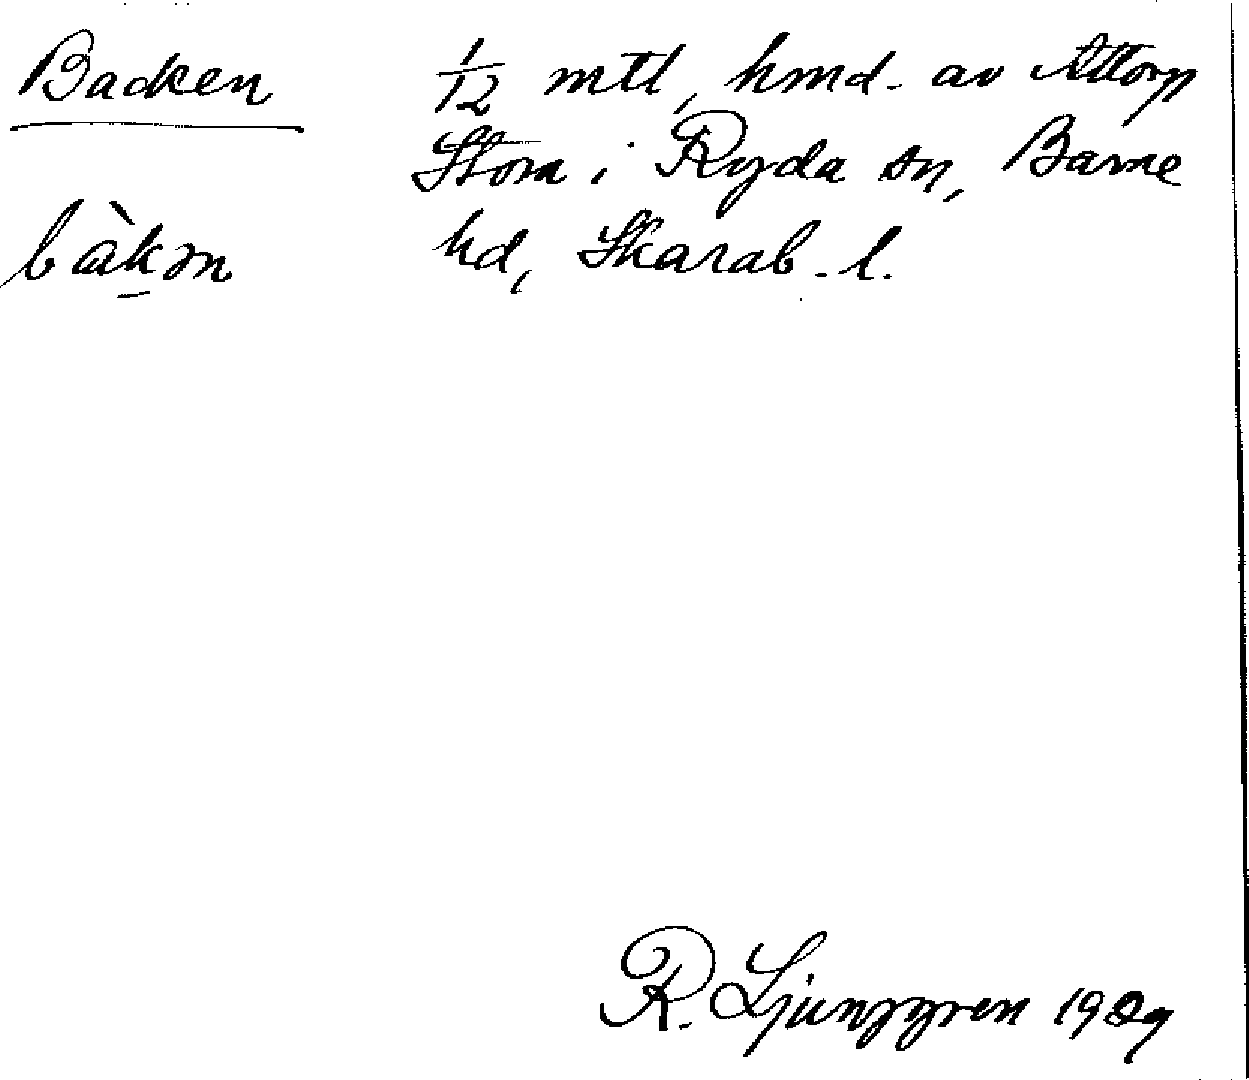 Backen
1/12 mtl, hmd. av Attorp
Stora i Ryda sn, Barne
bàkən
hd, Skarab. l.
R. Ljunggren 1929